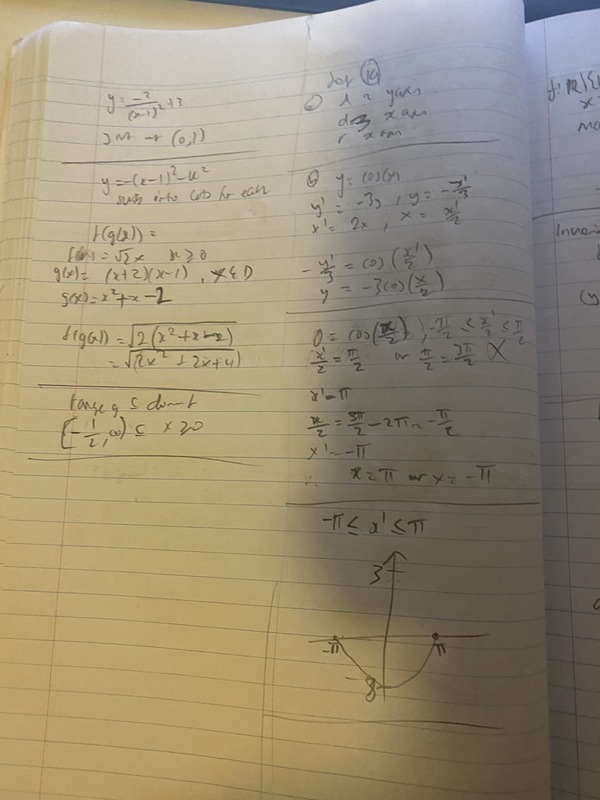 y = -2/(x-1)² + 3
→ (0,1)
y = -(x-1)² - x²
for each
f(g(x)) =
f(x) = √2x x ≥ 0
g(x) = (x+2)(x-1), x ∈ D
g(x) = x² + x - 2
f(g(x)) = √(2(x²+x-2))
= √(2x² + 2x + 4)
range g ⊆ dom f
[-1/2, ∞) ⊆ x ≥ 0
y axis
x axis
r x axis
y = cos(x)
y' = -3y, y = -y'/3
x' = 2x, x = x'/2
-y'/3 = cos(x'/2)
y = -3cos(x/2)
0 = cos(x/2), -π/2 ≤ x'/2 ≤ π/2
x'/2 = π/2 or π/2 = 3π/2 X
x' = π
x/2 = 3π/2 - 2π = -π/2
x' = -π
∴ x = π or x = -π
-π ≤ x' ≤ π
3
-π π
-3
f: R\{1
x
Invari
(y